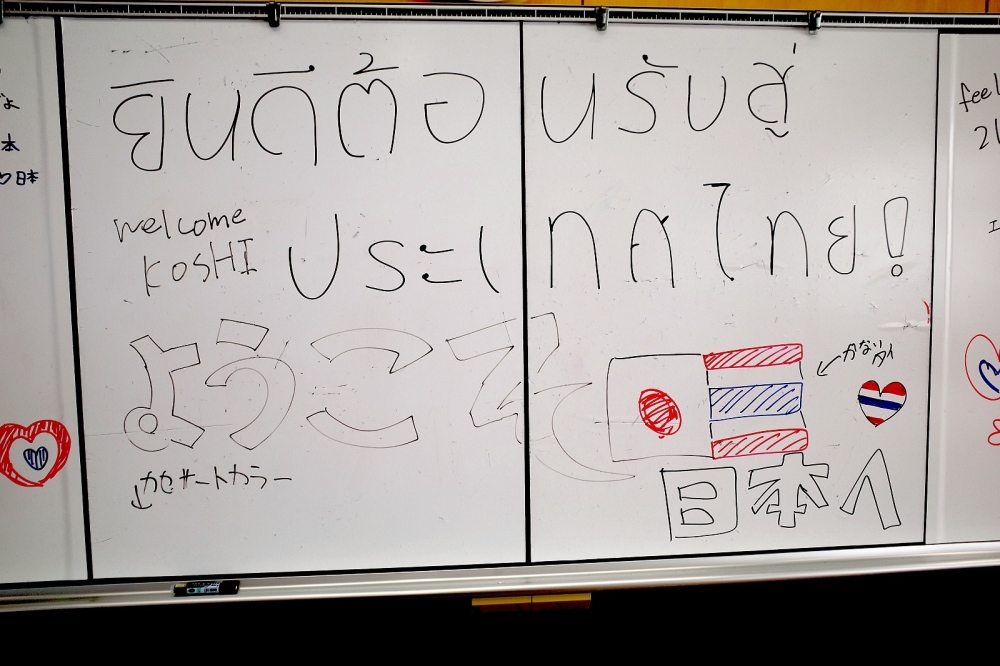 ยินดีต้อนรับสู่
welcome
KOSHI
ประเทศไทย!
ようこそ
カセサートカラー
日本へ
本
♡日本
feel